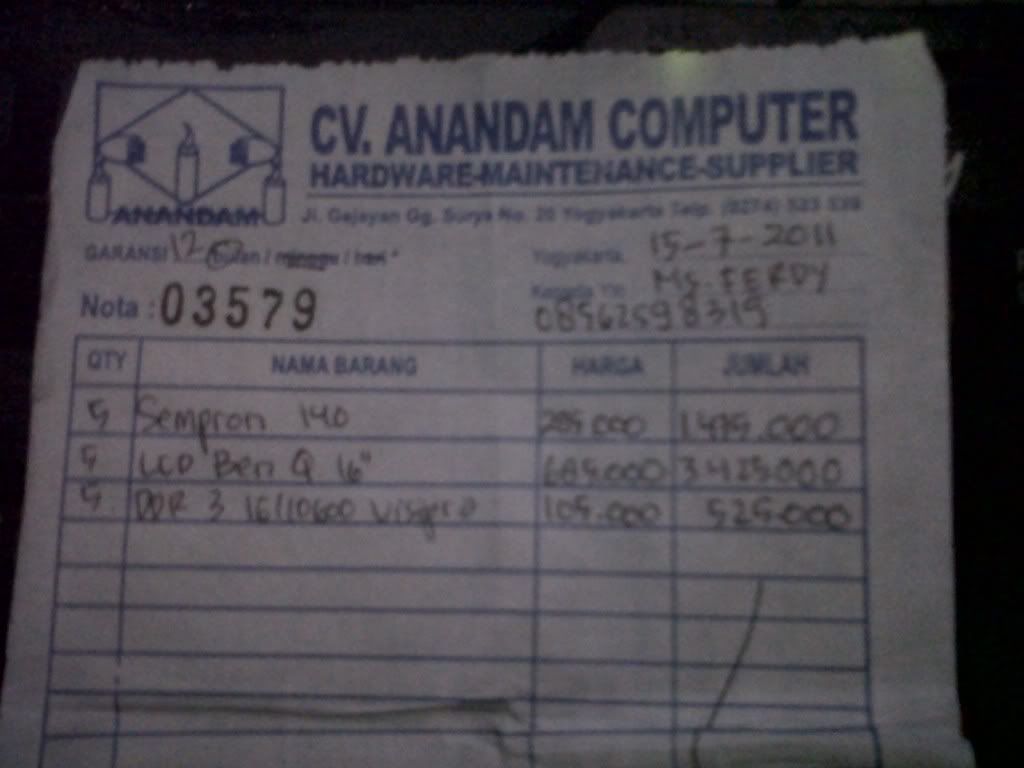 CV. ANANDAM COMPUTER
HARDWARE-MAINTENANCE-SUPPLIER
ANANDAM
Jl. Gejayan Gg. Surya No. 20 Yogyakarta Telp. (0274) 523
GARANSI 12 bulan / minggu / hari *
Yogyakarta, 15-7-2011
Kepada Yth. Ms. FERDY
08562598319
Nota : 03579
QTY NAMA BARANG HARGA JUMLAH
5 Sempron 140 1.495.000
5 LCD BenQ 16" 685.000 3.425.000
5 DDR 3 1G/10600 105.000 525.000